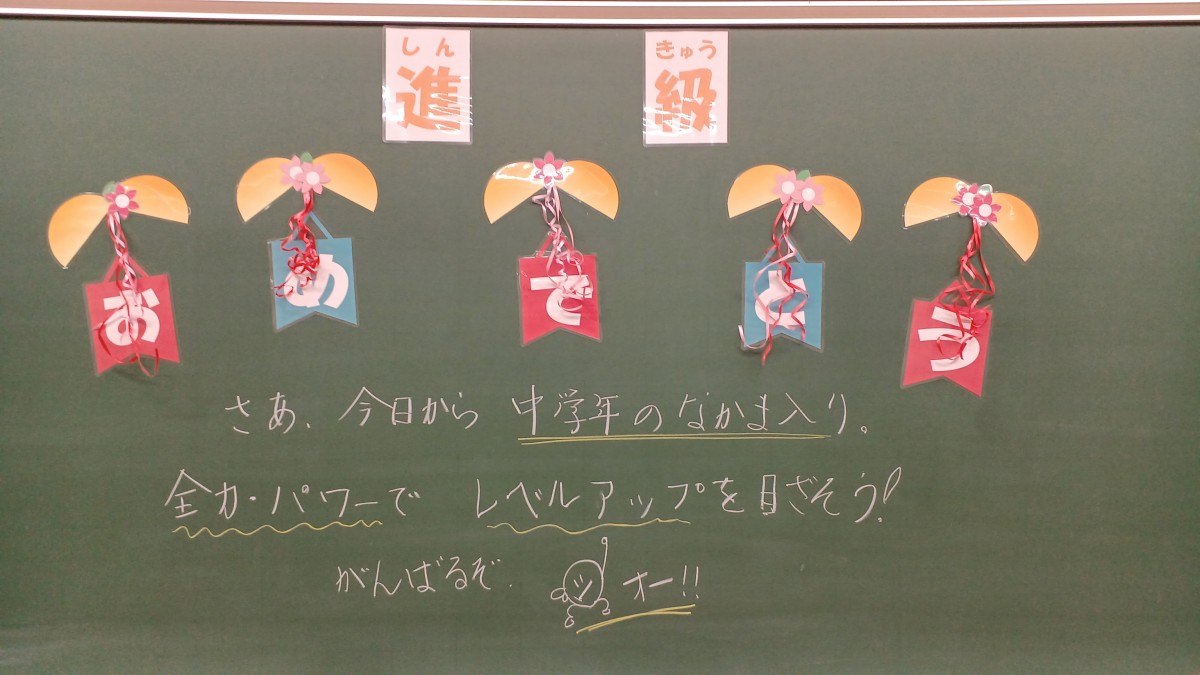 しん きゅう
進 級
おめでとう
さあ、今日から 中学年のなかま入り。
全力・パワーで レベルアップを目ざそう!
がんばるぞ。 オー!!